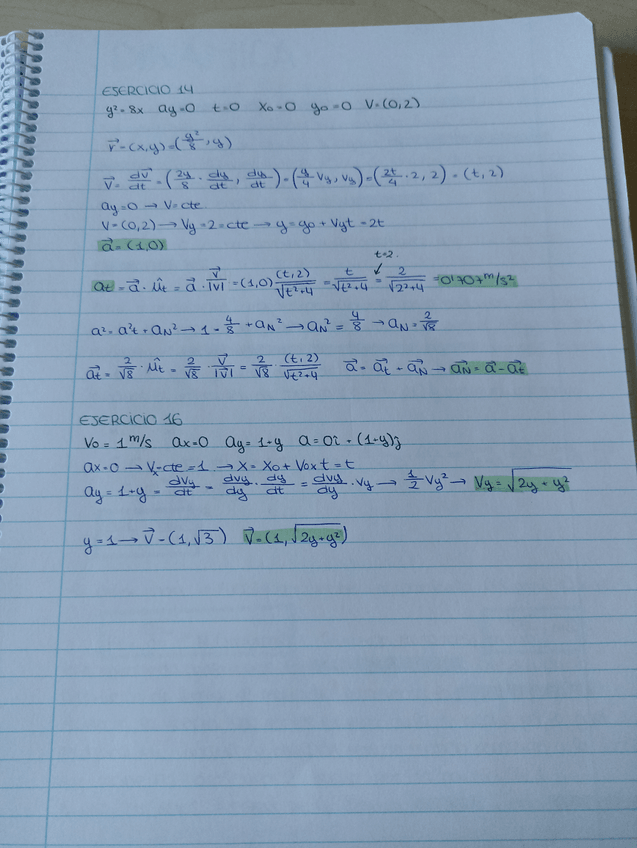 EJERCICIO 14
y² = 8x ay = 0 t = 0 x₀ = 0 y₀ = 0 V = (0,2)
r⃗ = (x,y) = (y²/8, y)
V⃗ = dV⃗/dt = (2y/8 · dy/dt, dy/dt) = (y/4 Vy, Vy) = (2t/4 · 2, 2) = (t, 2)
ay = 0 → V = cte
V = (0,2) → Vy = 2 = cte → y = y₀ + Vyt = 2t
a⃗ = (1,0)
t=2.
at = a⃗ · û t = a⃗ · V⃗/|V| = (1,0) (t,2)/√t²+4 = t/√t²+4 = 2/√2²+4 = 0'707 m/s²
a² = a²t + aN² → 1 = 4/8 + aN² → aN² = 4/8 → aN = 2/√8
a⃗t = 2/√8 · ût = 2/√8 · V⃗/|V| = 2/√8 · (t,2)/√t²+4 a⃗ = a⃗t + a⃗N → a⃗N = a⃗ - a⃗t
EJERCICIO 16
V₀ = 1 m/s ax = 0 ay = 1+y a = 0i + (1+y)j
ax = 0 → Vx = cte = 1 → x = x₀ + V₀x t = t
ay = 1+y = dVy/dt = dVy/dy · dy/dt = dVy/dy · Vy → 1/2 Vy² → Vy = √2y + y²
y = 1 → V⃗ = (1, √3) V⃗ = (1, √2y+y²)